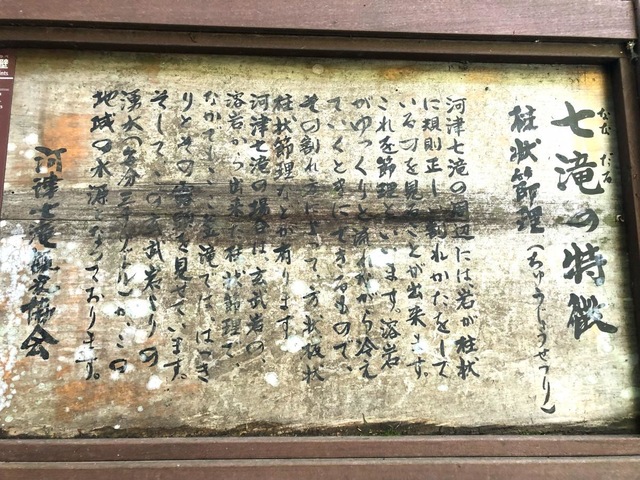 七滝の特徴
なな だる
柱状節理
(ちゅうじょうせつり)
河津七滝の周辺には岩が柱状
に規則正しく割れかたをして
いるのを見ることが出来ます。
これを節理といいます。溶岩
がゆっくりと流れながら冷え
ていくときにできるもので、
その割れ方によって、方状板状
柱状節理などが有ります
河津七滝の場合は、玄武岩の、
溶岩から出来た柱状節理で、
なかでも 滝では、はっき
りとその を見せています。
そして、この玄武岩よりの
湧水(毎分 トン)が、この
地域の水源となっております。
河津七滝観光協会